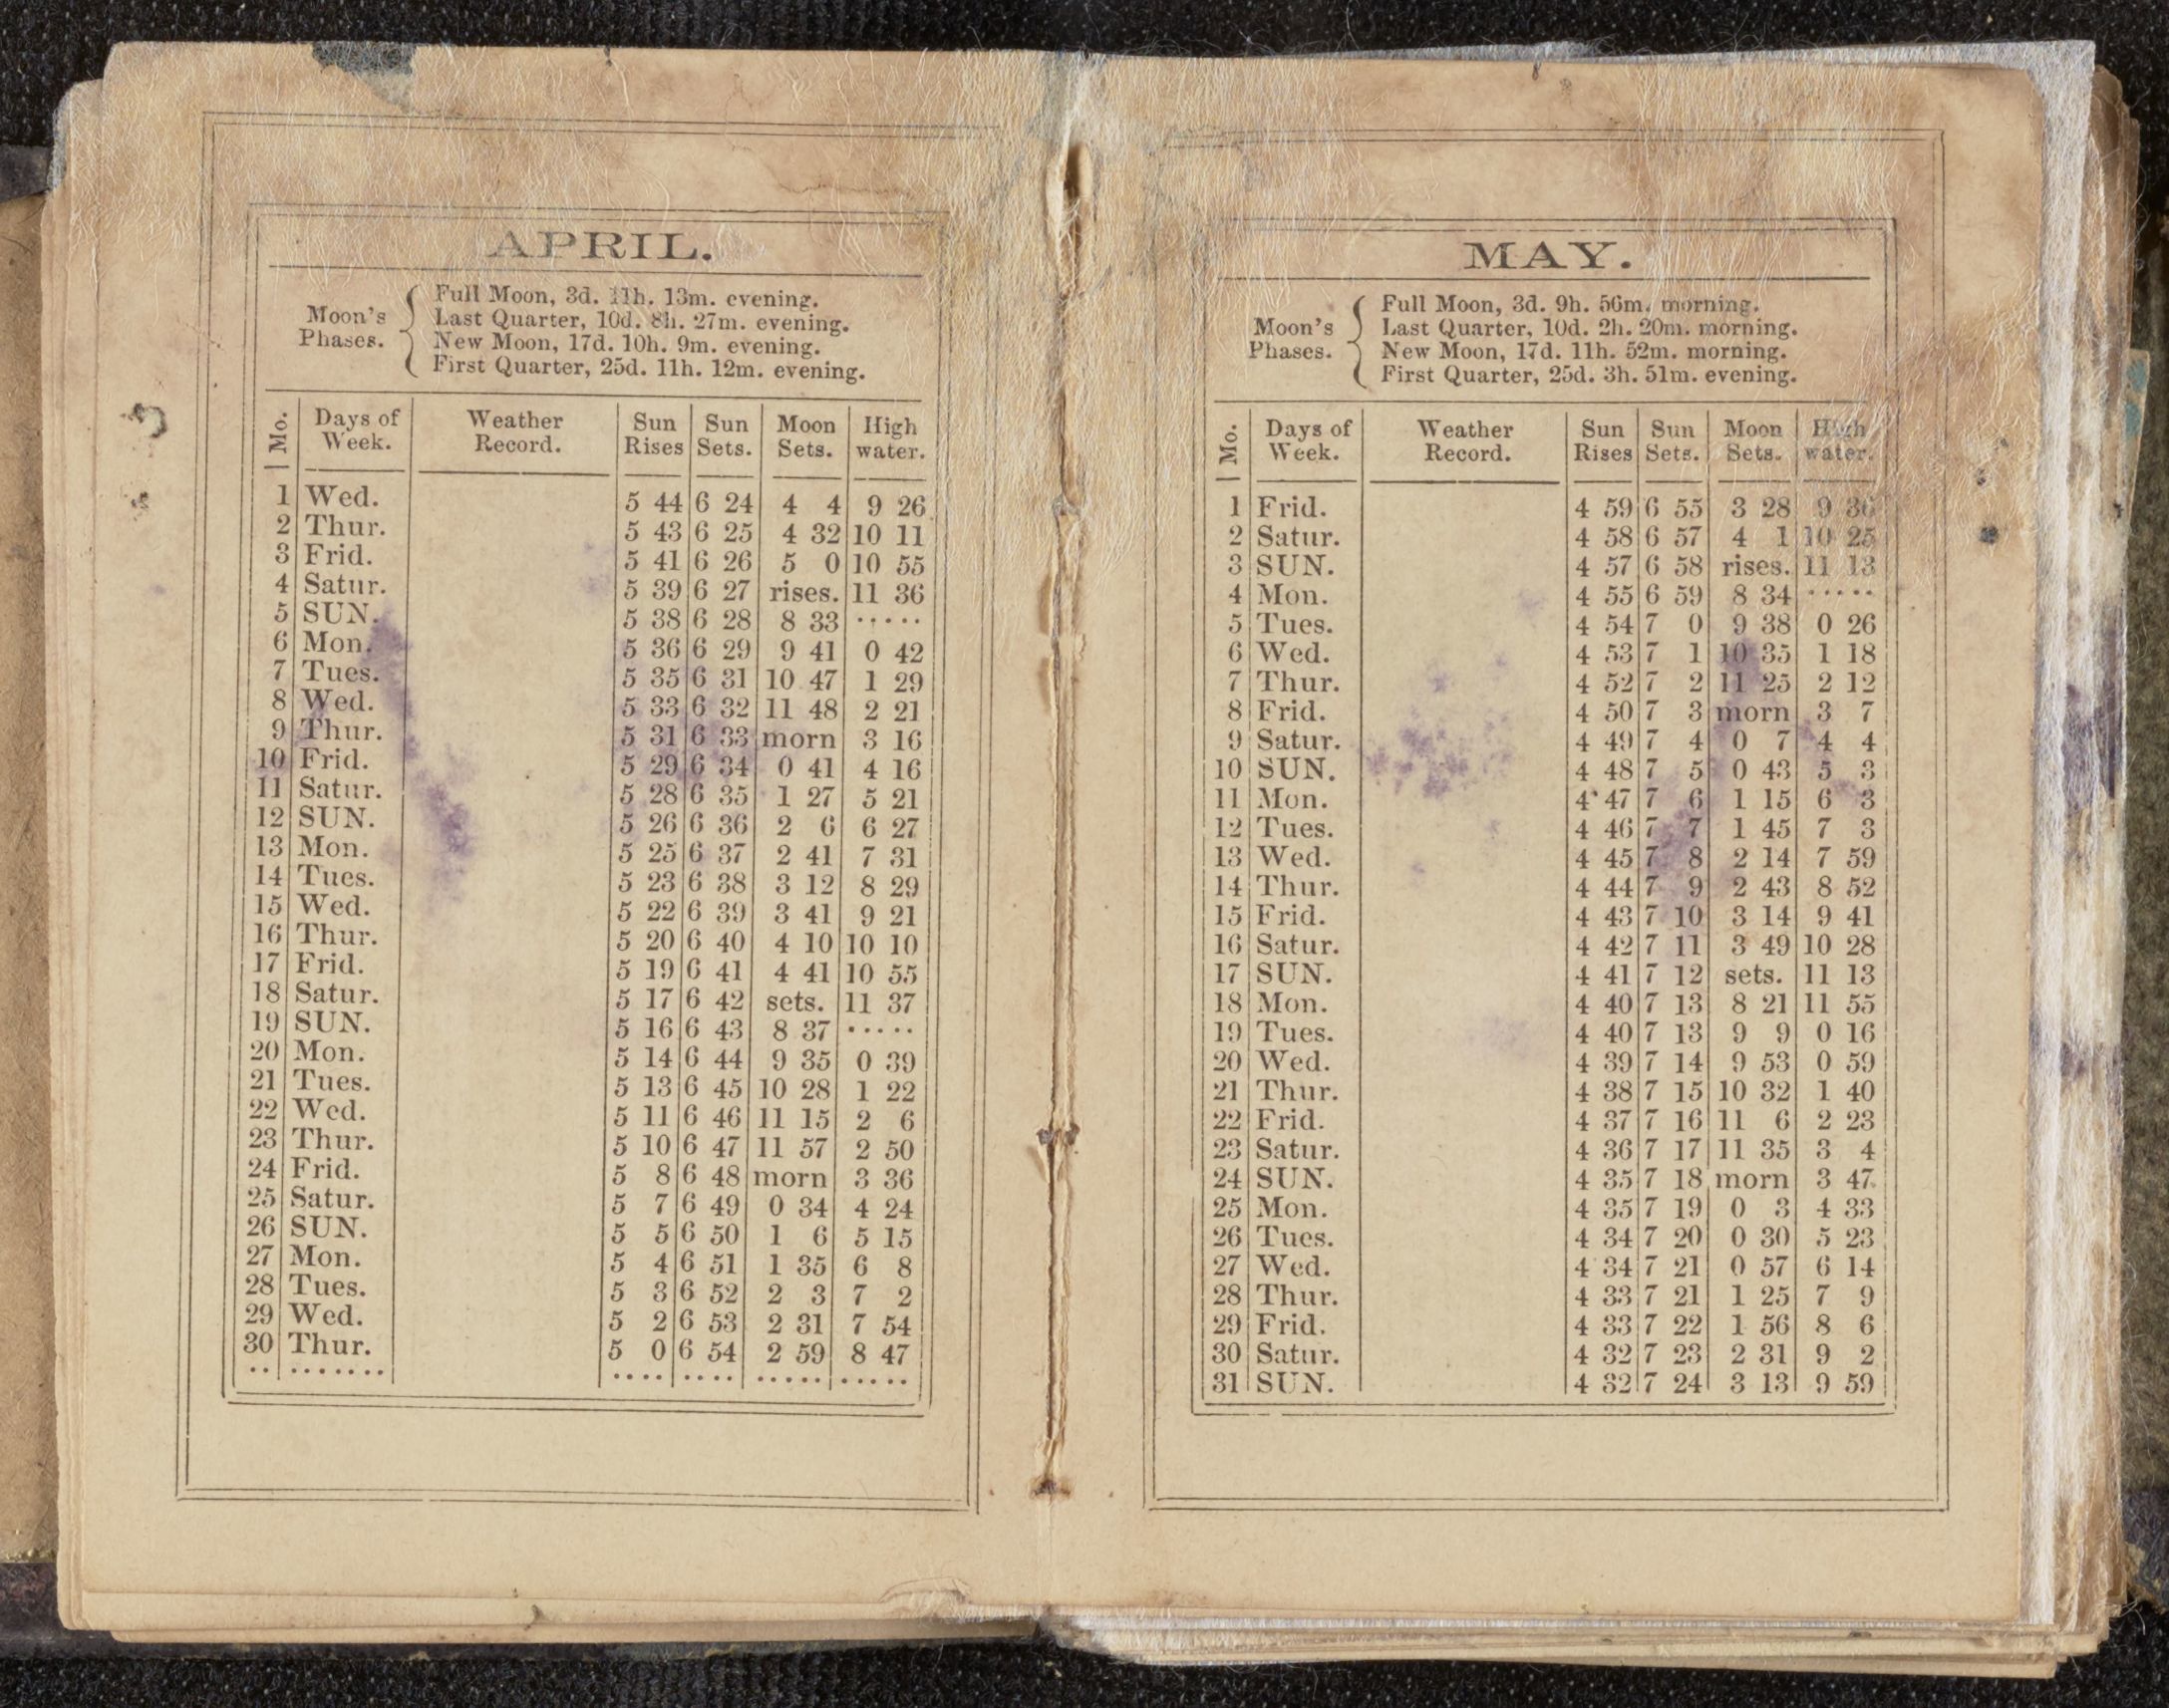 APRIL.
Moon's Phases.
Full Moon, 3d. 11h. 13m. evening.
Last Quarter, 10d. 8h. 27m. evening.
New Moon, 17d. 10h. 9m. evening.
First Quarter, 25d. 11h. 12m. evening.
Mo. Days of Week. Weather Record. Sun Rises Sun Sets. Moon Sets. High water.
1 Wed. 5 44 6 24 4 4 9 26
2 Thur. 5 43 6 25 4 32 10 11
3 Frid. 5 41 6 26 5 0 10 55
4 Satur. 5 39 6 27 rises. 11 36
5 SUN. 5 38 6 28 8 33 .....
6 Mon. 5 36 6 29 9 41 0 42
7 Tues. 5 35 6 31 10 47 1 29
8 Wed. 5 33 6 32 11 48 2 21
9 Thur. 5 31 6 33 morn 3 16
10 Frid. 5 29 6 34 0 41 4 16
11 Satur. 5 28 6 35 1 27 5 21
12 SUN. 5 26 6 36 2 6 6 27
13 Mon. 5 25 6 37 2 41 7 31
14 Tues. 5 23 6 38 3 12 8 29
15 Wed. 5 22 6 39 3 41 9 21
16 Thur. 5 20 6 40 4 10 10 10
17 Frid. 5 19 6 41 4 41 10 55
18 Satur. 5 17 6 42 sets. 11 37
19 SUN. 5 16 6 43 8 37 .....
20 Mon. 5 14 6 44 9 35 0 39
21 Tues. 5 13 6 45 10 28 1 22
22 Wed. 5 11 6 46 11 15 2 6
23 Thur. 5 10 6 47 11 57 2 50
24 Frid. 5 8 6 48 morn 3 36
25 Satur. 5 7 6 49 0 34 4 24
26 SUN. 5 5 6 50 1 6 5 15
27 Mon. 5 4 6 51 1 35 6 8
28 Tues. 5 3 6 52 2 3 7 2
29 Wed. 5 2 6 53 2 31 7 54
30 Thur. 5 0 6 54 2 59 8 47
.. ....... .... .... ..... .....
MAY.
Moon's Phases.
Full Moon, 3d. 9h. 56m. morning.
Last Quarter, 10d. 2h. 20m. morning.
New Moon, 17d. 11h. 52m. morning.
First Quarter, 25d. 3h. 51m. evening.
Mo. Days of Week. Weather Record. Sun Rises Sun Sets. Moon Sets. High water.
1 Frid. 4 59 6 55 3 28 9 36
2 Satur. 4 58 6 57 4 1 10 25
3 SUN. 4 57 6 58 rises. 11 13
4 Mon. 4 55 6 59 8 34 .....
5 Tues. 4 54 7 0 9 38 0 26
6 Wed. 4 53 7 1 10 35 1 18
7 Thur. 4 52 7 2 11 25 2 12
8 Frid. 4 50 7 3 morn 3 7
9 Satur. 4 49 7 4 0 7 4 4
10 SUN. 4 48 7 5 0 43 5 3
11 Mon. 4 47 7 6 1 15 6 3
12 Tues. 4 46 7 7 1 45 7 3
13 Wed. 4 45 7 8 2 14 7 59
14 Thur. 4 44 7 9 2 43 8 52
15 Frid. 4 43 7 10 3 14 9 41
16 Satur. 4 42 7 11 3 49 10 28
17 SUN. 4 41 7 12 sets. 11 13
18 Mon. 4 40 7 13 8 21 11 55
19 Tues. 4 40 7 13 9 9 0 16
20 Wed. 4 39 7 14 9 53 0 59
21 Thur. 4 38 7 15 10 32 1 40
22 Frid. 4 37 7 16 11 6 2 23
23 Satur. 4 36 7 17 11 35 3 4
24 SUN. 4 35 7 18 morn 3 47
25 Mon. 4 35 7 19 0 3 4 33
26 Tues. 4 34 7 20 0 30 5 23
27 Wed. 4 34 7 21 0 57 6 14
28 Thur. 4 33 7 21 1 25 7 9
29 Frid. 4 33 7 22 1 56 8 6
30 Satur. 4 32 7 23 2 31 9 2
31 SUN. 4 32 7 24 3 13 9 59